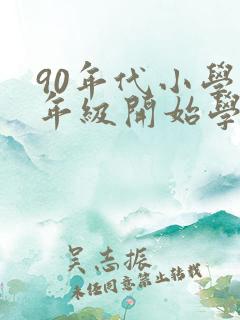 90年代小學
年級開始學
吴志振
未经同意禁止转载